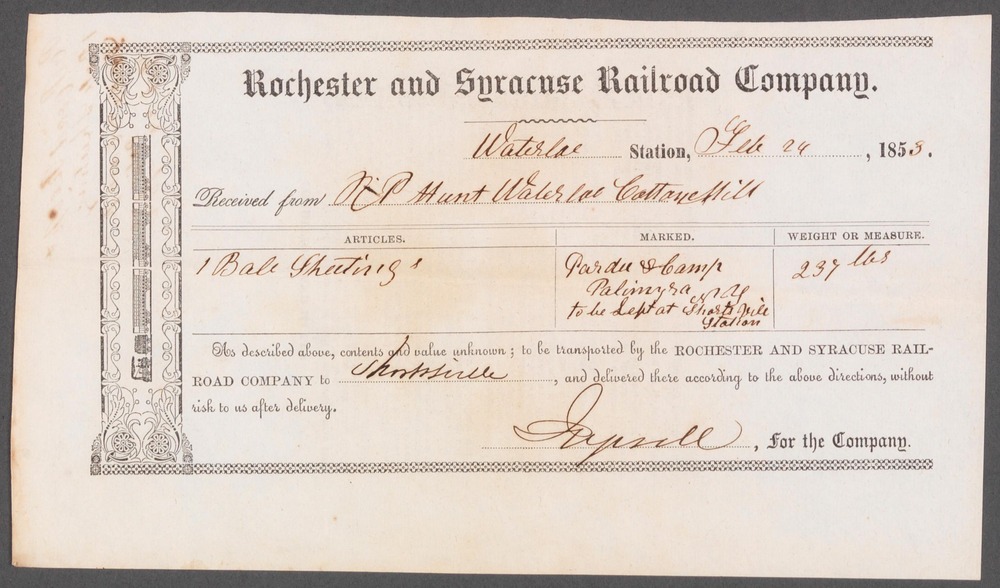 Rochester and Syracuse Railroad Company.
Waterloe Station, Feb 24, 1853.
Received from R P Hunt Waterloe Cotton Mill
ARTICLES. MARKED. WEIGHT OR MEASURE.
1 Bale Sheetings Pardee & Camp 237 lbs
Palimyra N Y
to be Left at Shorts Vile
Station
As described above, contents and value unknown; to be transported by the ROCHESTER AND SYRACUSE RAIL-
ROAD COMPANY to Shortsville, and delivered there according to the above directions, without
risk to us after delivery.
, For the Company.